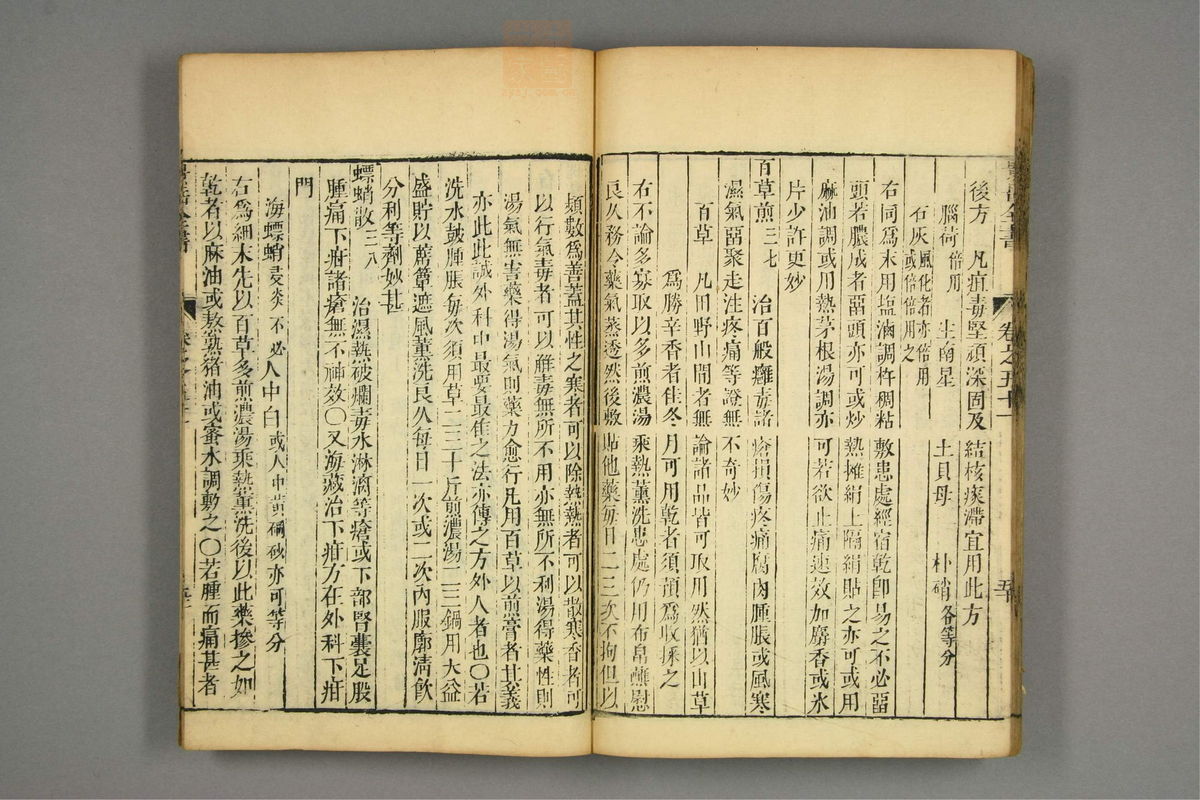 後方　凡疽毒堅頑深固及結核痰滯宜用此方
腦荷倍用　生南星　土貝母　朴硝各等分
石灰風化者亦倍用或倍倍用之
右同爲末用塩滷調杵稠粘敷患處經宿乾卽易之不必畱
頭若膿成者畱頭亦可或炒熱攤絹上隔絹貼之亦可或用
麻油調或用熱茅根湯調亦可若欲止痛速效加麝香或氷
片少許更妙
百草煎三七　治百般癰毒諸瘡損傷疼痛腐肉腫脹或風寒
濕氣畱聚走注疼痛等證無不奇妙
百草　凡田野山間者無論諸品皆可取用然猶以山草
爲勝辛香者佳冬月可用乾者須預爲收採之
右不論多寡取以多煎濃湯乘熱薰洗患處仍用布帛蘸慰
良久務令藥氣蒸透然後敷貼他藥每日二三次不拘但以
卷之五十一
頻數爲善蓋其性之寒者可以除熱熱者可以散寒香者可
以行氣毒者可以解毒無所不用亦無所不利湯得藥性則
湯氣無害藥得湯氣則藥力愈行凡用百草以煎膏者其義
亦此此誠外科中最要最佳之法亦傳之方外人者也〇若
洗水鼓腫脹每次須用草二三十斤煎濃湯二三鍋用大盆
盛貯以蓆簟遮風薰洗良久每日一次或二次內服廓清飲
分利等劑妙甚
螵蛸散三八　治濕熱破爛毒水淋漓等瘡或下部腎囊足股
腫痛下疳諸瘡無不神效〇又海藏治下疳方在外科下疳
門
海螵蛸 不必　人中白或人中黃硇砂亦可等分
右爲細末先以百草多煎濃湯乘熱薰洗後以此藥摻之如
乾者以麻油或熬熟猪油或蜜水調敷之〇若腫而痛甚者